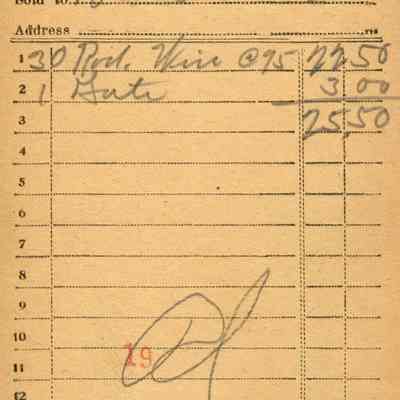 Sold to
Address
1 30 Rod. Wire @ 75 22 50
2 1 Gate 3 00
3 25 50
4
5
6
7
8
9
10
19
11
12